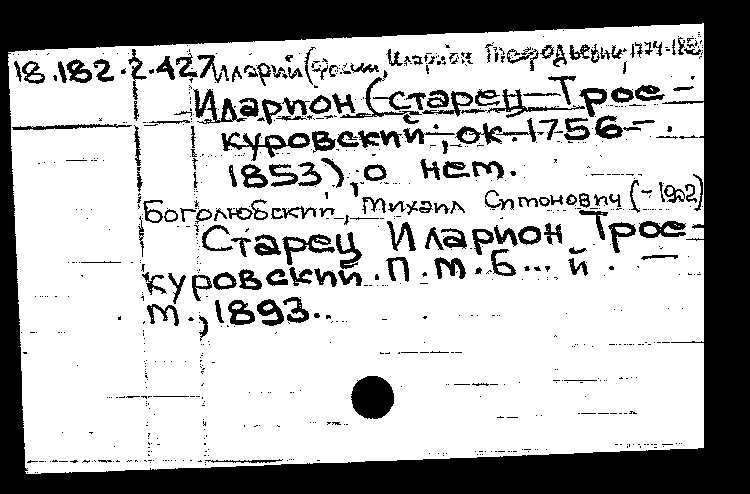 18.182.2.427 Иларий (Фокин, Иларион Мефодьевич, 1774-185
Иларион (старец Трое-
куровский, ок. 1756-
1853), о нем.
Боголюбский, Михаил Симонович (-1902)
Старец Иларион Трое-
куровский. П. М. Б... й. —
М., 1893..